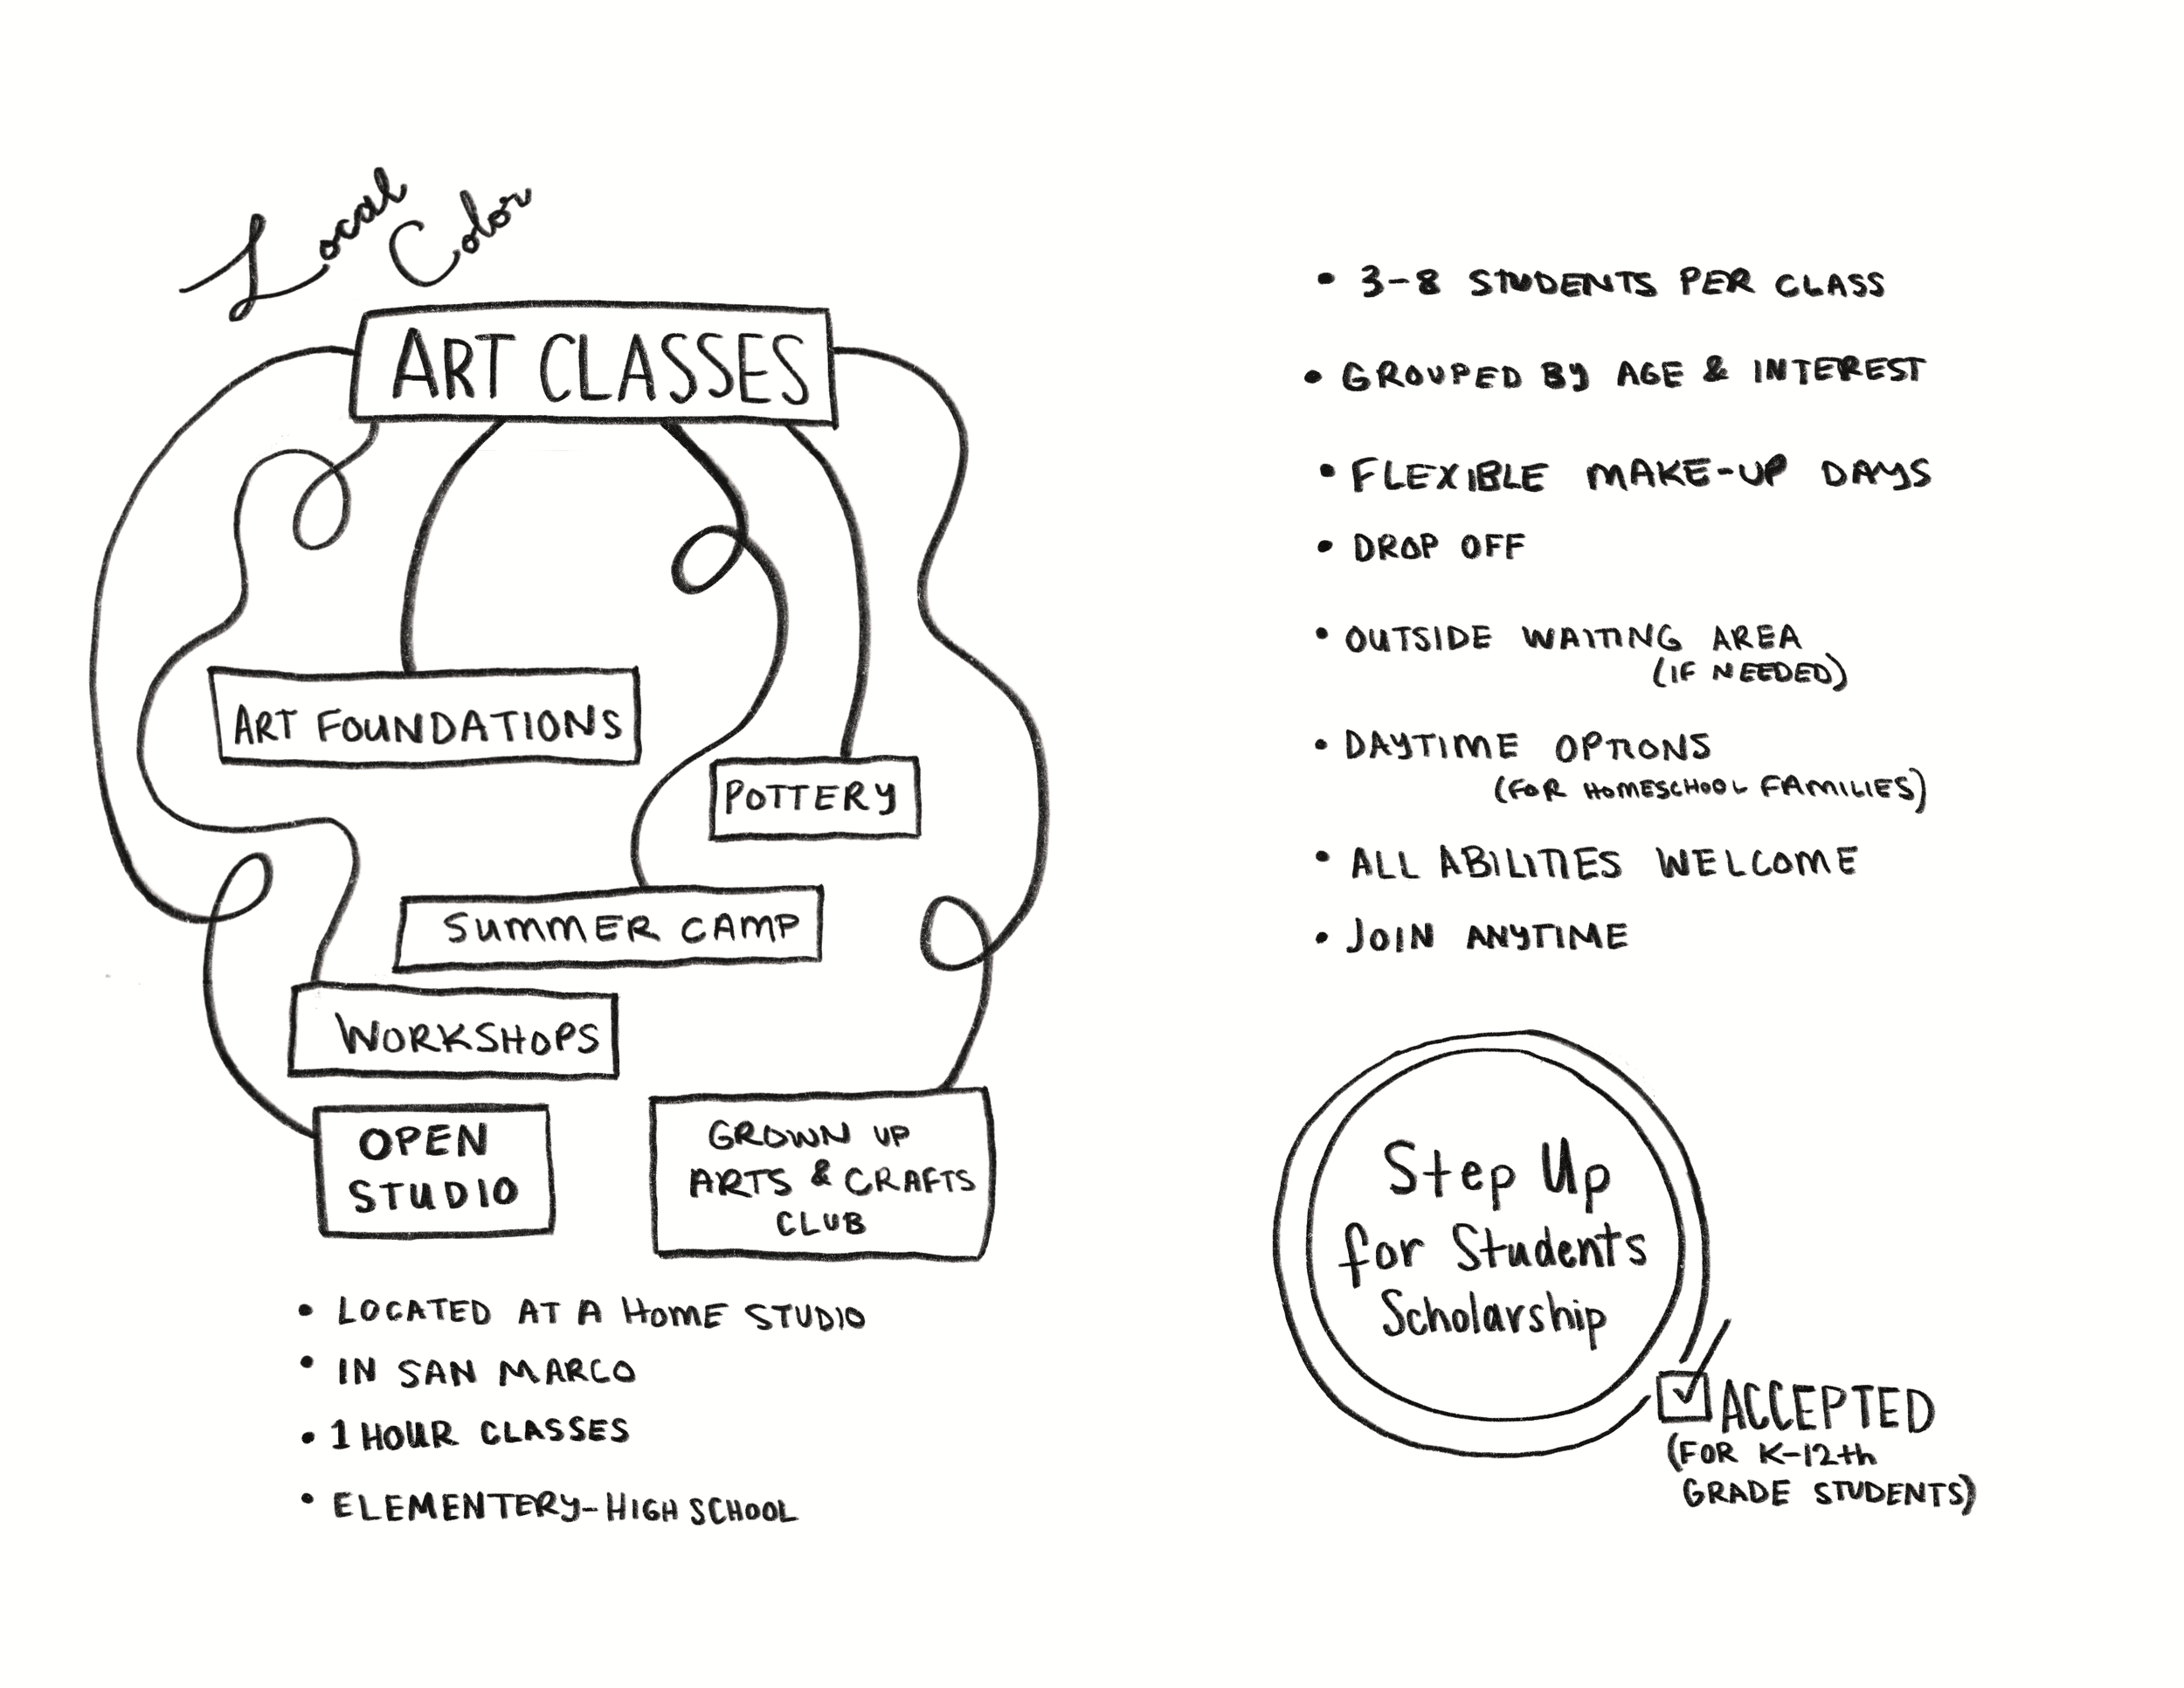 Local
Color
ART CLASSES
ART FOUNDATIONS
POTTERY
SUMMER CAMP
WORKSHOPS
OPEN
STUDIO
GROWN UP
ARTS & CRAFTS
CLUB
• LOCATED AT A HOME STUDIO
• IN SAN MARCO
• 1 HOUR CLASSES
• ELEMENTERY-HIGH SCHOOL
• 3-8 STUDENTS PER CLASS
• GROUPED BY AGE & INTEREST
• FLEXIBLE MAKE-UP DAYS
• DROP OFF
• OUTSIDE WAITING AREA
(IF NEEDED)
• DAYTIME OPTIONS
(FOR HOMESCHOOL FAMILIES)
• ALL ABILITIES WELCOME
• JOIN ANYTIME
Step Up
for Students
Scholarship
☑ ACCEPTED
(FOR K-12th
GRADE STUDENTS)